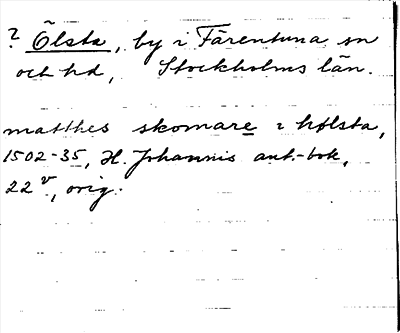 ? Ölsta, by i Färentuna sn
och hd, Stockholms län.
matthes skomare i hølsta,
1502-35, H. Johannis ant.-bok,
22 v, orig.